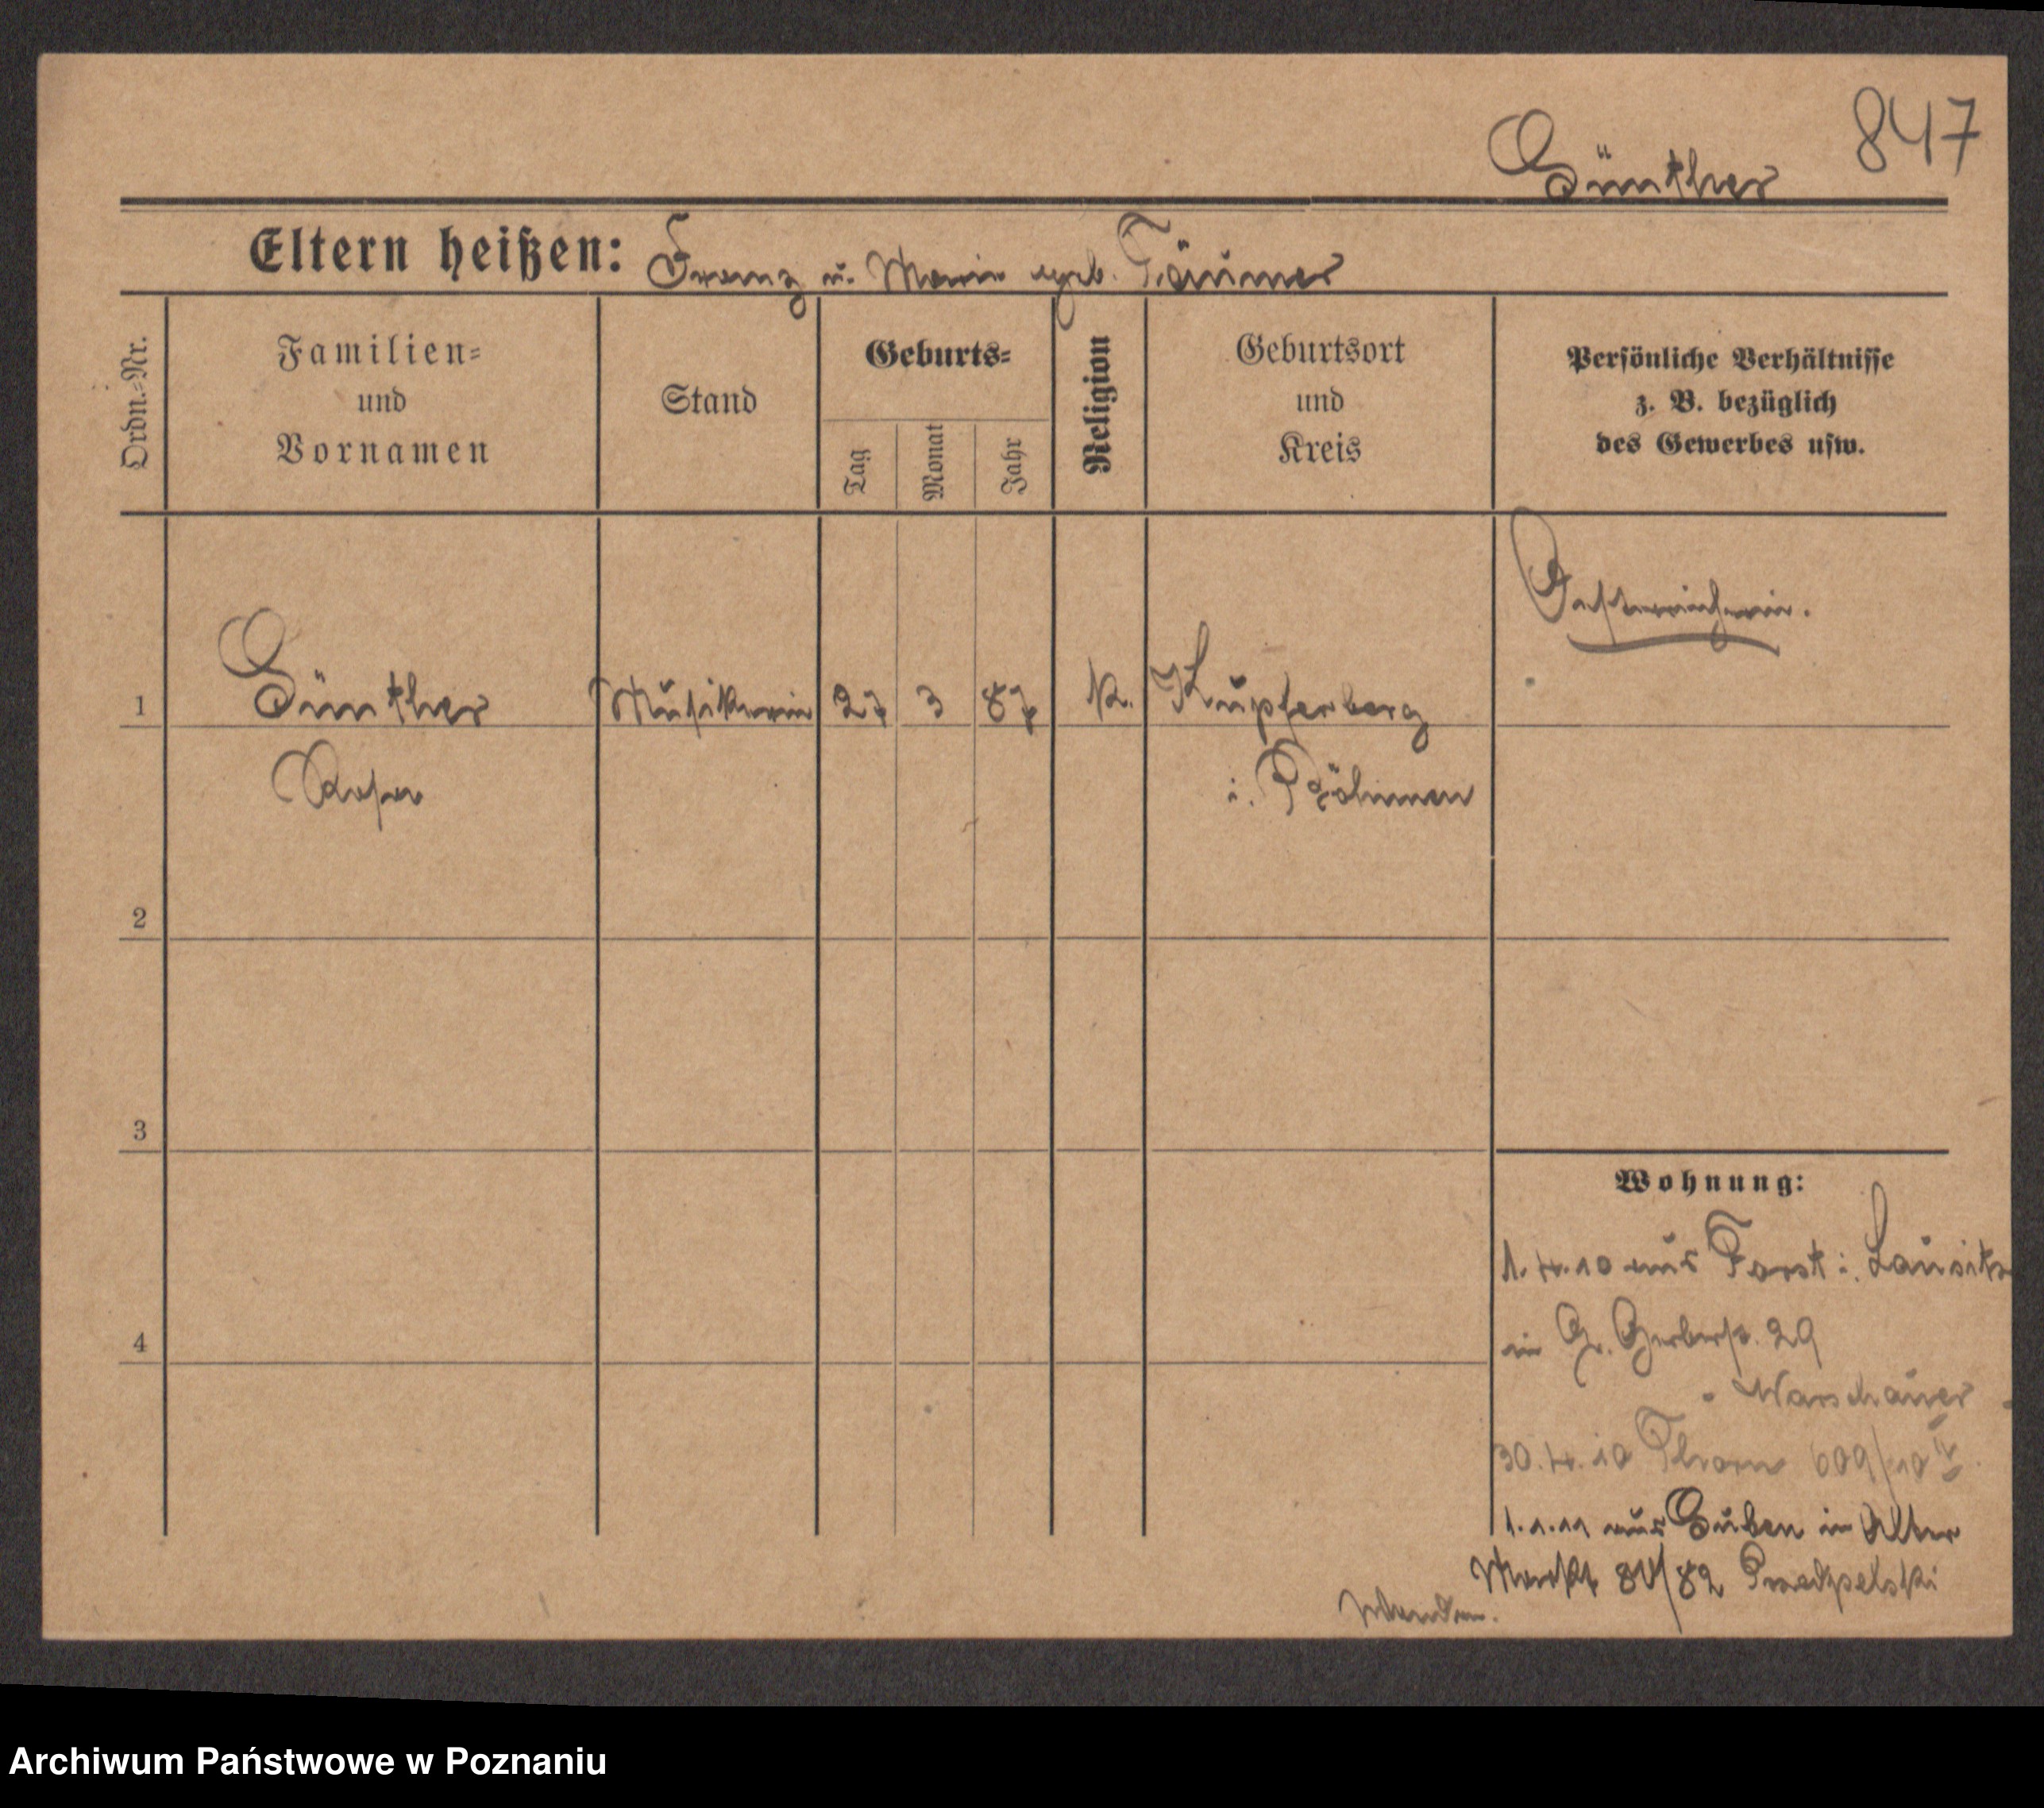 847
Günther
Eltern heißen: Franz u. Marie geb. Täumer
Ordn.=Nr.
Familien=
und
Vornamen
Stand
Geburts=
Tag
Monat
Jahr
Religion
Geburtsort
und
Kreis
Persönliche Verhältnisse
z. B. bezüglich
des Gewerbes usw.
Oesterreicherin.
1 Günther Musikerin 27 3 87 K. Kupferberg
Rosa i. Böhmen
2
3
Wohnung:
1.4.10 aus Forst i. Lausitz
in Gr. Gerberstr. 29
Warschauer
4
30.4.10 Thorn 609/10
1.1.11 aus Guben in Alter
Markt 81/82
Wenden.
Archiwum Państwowe w Poznaniu